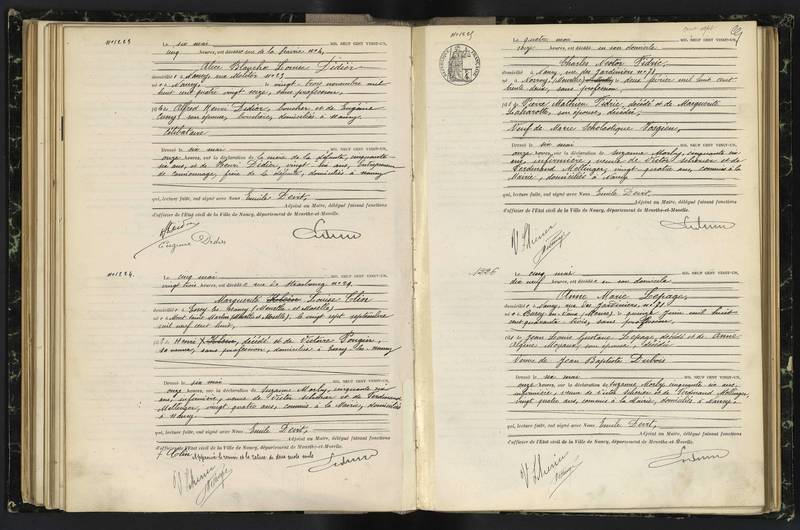 N° 1223
Le six mai MIL NEUF CENT VINGT-UN,
cinq heures, est décédée rue de la Prairie N° 4,
Alice Blanche Louise Didier
domiciliée à Nancy, rue Molitor N° 23
née à Nancy, le vingt trois novembre mil
huit cent quatre vingt seize, sans profession,
fille de Alfred Henri Didier, boucher et de Eugénie
son épouse, bouchère, domiciliés à Nancy.
Célibataire
Dressé le six mai MIL NEUF CENT VINGT-UN,
onze heures, sur la déclaration de la mère de la défunte, cinquante
six ans, et de Henri Didier, vingt six ans, entrepreneur
de camionnage, frère de la défunte, domiciliés à Nancy
qui, lecture faite, ont signé avec Nous Emile Devit,
Adjoint au Maire, délégué faisant fonctions
d'officier de l'Etat civil de la Ville de Nancy, département de Meurthe-et-Moselle.
Eugénie Didier
N° 1224.
Le cinq mai MIL NEUF CENT VINGT-UN,
vingt trois heures, est décédée rue de Strasbourg N° 29,
Marguerite Louise Clin
domiciliée à Essey les Nancy (Meurthe-et-Moselle)
le vingt sept septembre
mil neuf cent huit,
fille de Henri décédé et de Victoire Pougin,
sa veuve, sans profession, domiciliée à Essey-les-Nancy
Dressé le six mai MIL NEUF CENT VINGT-UN,
onze heures, sur la déclaration de Suzanne Morby, cinquante six
ans, infirmière, veuve de Victor Scherier et de Ferdinand
Mellinger, vingt quatre ans, commis à la Mairie, domiciliés
à Nancy.
qui, lecture faite, ont signé avec Nous Emile Devit,
Adjoint au Maire, délégué faisant fonctions
d'officier de l'Etat civil de la Ville de Nancy, département de Meurthe-et-Moselle.
Clin Approuvé le renvoi et la rature de deux mots nuls
N° 1225
Le quatre mai MIL NEUF CENT VINGT-UN,
onze heures, est décédé en son domicile
Charles Nestor Pédric
domicilié à Nancy, rue des Jardiniers N° 71
né à Nomeny (Meurthe) le deux février mil huit cent
trente deux, sans profession,
fils de Pierre Mathieu Pédric, décédé et de Marguerite
son épouse, décédée,
Veuf de Marie Scholastique
Dressé le six mai MIL NEUF CENT VINGT-UN,
onze heures, sur la déclaration de Suzanne Morby, cinquante six
ans, infirmière, veuve de Victor Scherier et de
Ferdinand Mellinger, vingt quatre ans, commis à la
Mairie, domiciliés à Nancy
qui, lecture faite, ont signé avec Nous Emile Devit,
Adjoint au Maire, délégué faisant fonctions
d'officier de l'Etat civil de la Ville de Nancy, département de Meurthe-et-Moselle.
V. Scherier
Mellinger
1226
Le cinq mai MIL NEUF CENT VINGT-UN,
dix neuf heures, est décédée en son domicile
Anne Marie Lepage,
domiciliée à Nancy, rue des Jardiniers N° 71
née à (Meuse) le quinze juin mil huit
cent quarante trois, sans profession,
fille de Jean Louis Gustave Lepage, décédé et de Anne
son épouse, décédée
Veuve de Jean Baptiste Dubois
Dressé le six mai MIL NEUF CENT VINGT-UN,
onze heures, sur la déclaration de Suzanne Morby, cinquante six ans,
infirmière, veuve de Victor Scherier et de Ferdinand Mellinger,
vingt quatre ans, commis à la Mairie, domiciliés à Nancy.
qui, lecture faite, ont signé avec Nous Emile Devit,
Adjoint au Maire, délégué faisant fonctions
d'officier de l'Etat civil de la Ville de Nancy, département de Meurthe-et-Moselle.
V. Scherier
Mellinger